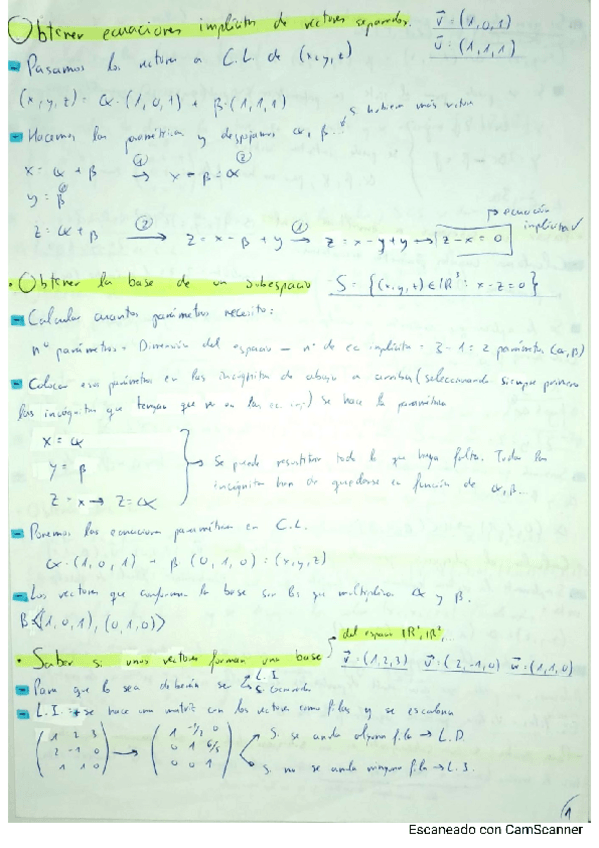 Obtener ecuaciones implícitas de vectores separados. v⃗ = (1,0,1)
u⃗ = (1,1,1)
- Pasamos los vectores a C.L de (x,y,z)
(x,y,z) = α·(1,0,1) + β·(1,1,1)
- Hacemos las paramétricas y despejamos α, β..
x = α + β ① → x - β = α ②
y = β ①
z = α + β ② → z = x - β + y ① → z = x - y + y → z - x = 0
ecuación implícita
· Obtener la base de un subespacio S = {(x,y,z) ∈ ℝ³ : x - z = 0}
- Calcular cuantos parámetros necesito:
nº parámetros = Dimensión del espacio - nº de ec implícitas = 3 - 1 = 2 parámetros (α, β)
- Colocar esos parámetros en las incógnitas de abajo a arriba (seleccionando siempre primero
las incógnitas que tengan que ver en las ec imp) se hace la paramétrica
x = α
y = β
z = x → z = α
Se puede resustituir todo lo que haga falta. Todas las
incógnitas han de quedarse en función de α, β...
- Ponemos las ecuaciones paramétricas en C.L.
α·(1,0,1) + β (0,1,0) = (x,y,z)
- Los vectores que conforman la base son los que multiplican α y β.
B = <(1,0,1), (0,1,0)>
del espacio ℝ³, ℝ²..
· Saber si unos vectores forman una base v⃗ = (1,2,3) u⃗ = (2,-1,0) w⃗ = (1,1,0)
- Para que lo sea deberán ser L.I
- L.I. → se hace una matriz con los vectores como filas y se escalona
1 2 3 → 1 -1/2 0 Si se anula alguna fila → L.D.
2 -1 0 0 1 6/5
1 1 0 0 0 1 Si no se anula ninguna fila → L.I.
1
Escaneado con CamScanner